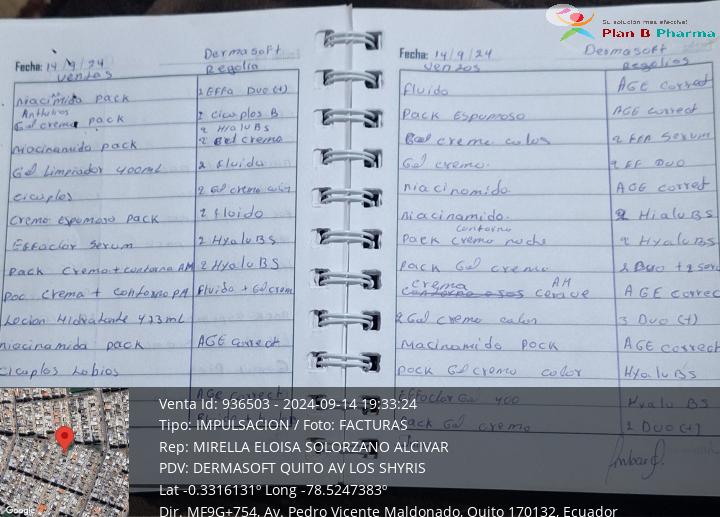 Su solución más efectiva!
Plan B Pharma
Fecha: 14/9/24
Dermasoft
Ventas
Regalia
niacimida pack
2 EFFA Duo (+)
Anthelios
Gel crema pack
2 cicaplos B
2 HialuBS
Niacinamida pack
2 Gel crema
Gel Limpiador 400ml
2 Fluido
Cicaplos
2 Gel crema color
Crema espumosa pack
2 Fluido
Effaclor Serum
2 HyaluBS
Pack Crema + contorno AM
2 HyaluBS
Crema + contorno PM
Fluido + Gel crema
Locion Hidratante 473ml
niacinamida pack
AGE Correct
Cicaplos Labios
AGE correct
Fecha: 14/9/24
Dermasoft
Ventas
Regalias
Fluido
AGE Correct
Pack Espumoso
AGE Correct
Gel crema color
2 EFA Serum
Gel crema.
2 EF DUO
niacinamida
AGE Correct
Niacinamida.
2 HialuBS
contorno
Pack crema noche
2 HyaluBS
Pack Gel crema
2 Duo + 2 seru
crema AM
AGE Correc
2 Gel crema color
3 Duo (+)
Niacinamida Pock
AGE correct
Pock Gel crema color
HyaluBS
Effaclor Gel 400
Hyalu BS
Pack Gel crema
2 DUO (+)
Google
Venta Id: 936503 - 2024-09-14 19:33:24
Tipo: IMPULSACION / Foto: FACTURAS
Rep: MIRELLA ELOISA SOLORZANO ALCIVAR
PDV: DERMASOFT QUITO AV LOS SHYRIS
Lat -0.3316131° Long -78.5247383°
Dir. MF9G+754, Av. Pedro Vicente Maldonado, Quito 170132, Ecuador